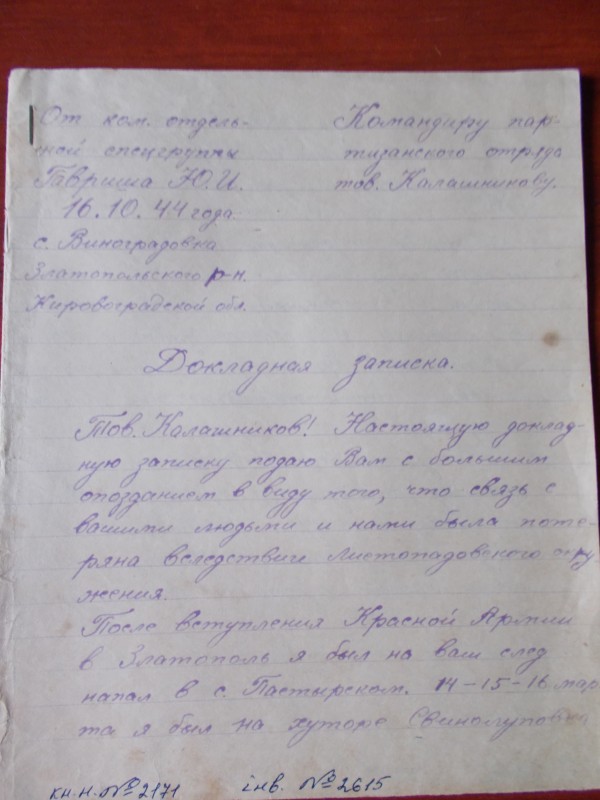 От ком. отдель-
ной спецгруппы
Гавриша Ю.И.
16.10.44 года.
с. Виноградовка
Златопольского р-н.
Кировоградской обл.
Командиру пар-
тизанского отряда
тов. Калашникову.
Докладная записка.
Тов. Калашников! Настоящую доклад-
ную записку подаю Вам с большим
опозданием в виду того, что связь с
вашими людьми и нами была поте-
ряна вследствии Листопадовского окру
жения.
После вступления Красной Армии
в Златополь я был на ваш след
напал в с. Пастырском. 14-15-16 мар
та я был на хуторе
кн.н. №2171
інв. №2615